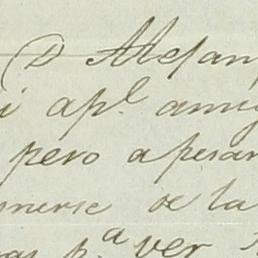 D Alejan
i apl. amig
pero apesar
nerse de la
pa ver